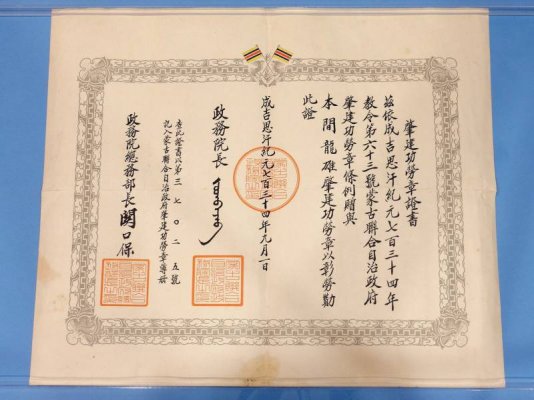 肇建功勞章證書
茲依成吉思汗紀元七百三十四年
教令第六十三號蒙古聯合自治政府
肇建功勞章條例贈與
本間龍雄肇建功勞章以彰勞勩
此證
成吉思汗紀元七百三十四年元月一日
政務院長
查此證書以第三七〇二五號
記入蒙古聯合自治政府肇建功勞章簿冊
政務院總務部長 關口保